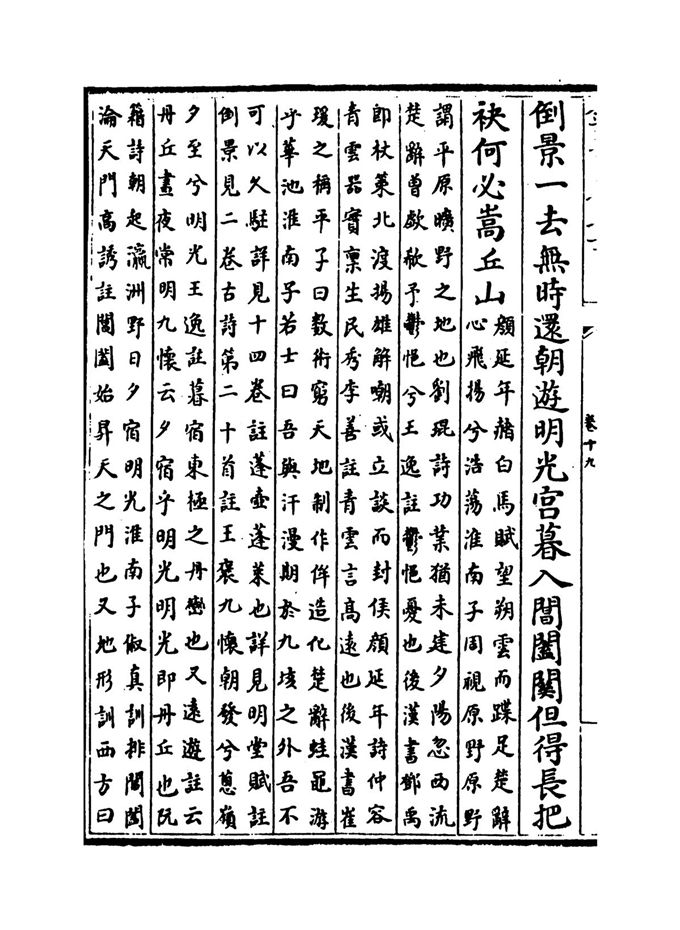 倒景一去無時還朝遊明光宫暮入閶闔闗但得長把
袂何必嵩丘山
顔延年赭白馬賦望朔雲而蹀足楚辭
心飛揚兮浩蕩淮南子周視原野原野
謂平原曠野之地也劉琨詩功業猶未建夕陽忽西流
楚辭曾歔欷予鬱悒兮王逸註鬱悒憂也後漢書鄧禹
即杖策北渡揚雄解嘲或立談而封侯顔延年詩仲容
青雲器實稟生民秀李善註青雲言髙遠也後漢書崔
瑗之稱平子曰數術窮天地制作侔造化楚辭蛙黽游
乎華池淮南子若士曰吾與汗漫期於九垓之外吾不
可以久駐詳見十四卷註蓬壺蓬萊也詳見明堂賦註
倒景見二卷古詩第二十首註王褒九懷朝發兮蔥嶺
夕至兮明光王逸註暮宿東極之丹巒也又遠遊註云
丹丘晝夜常明九懷云夕宿乎明光明光即丹丘也阮
籍詩朝起瀛洲野日夕宿明光淮南子俶真訓排閶闔
淪天門髙誘註閶闔始昇天之門也又地形訓西方曰
卷十九